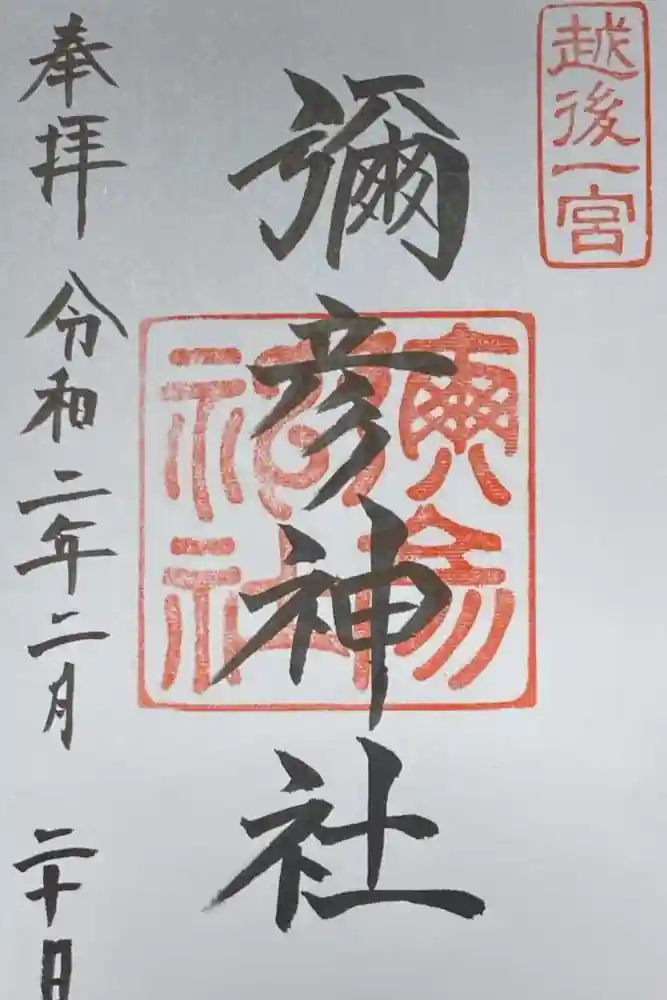 越後一宮
彌彦神社
彌彦神社
奉拝 令和二年二月 二十日